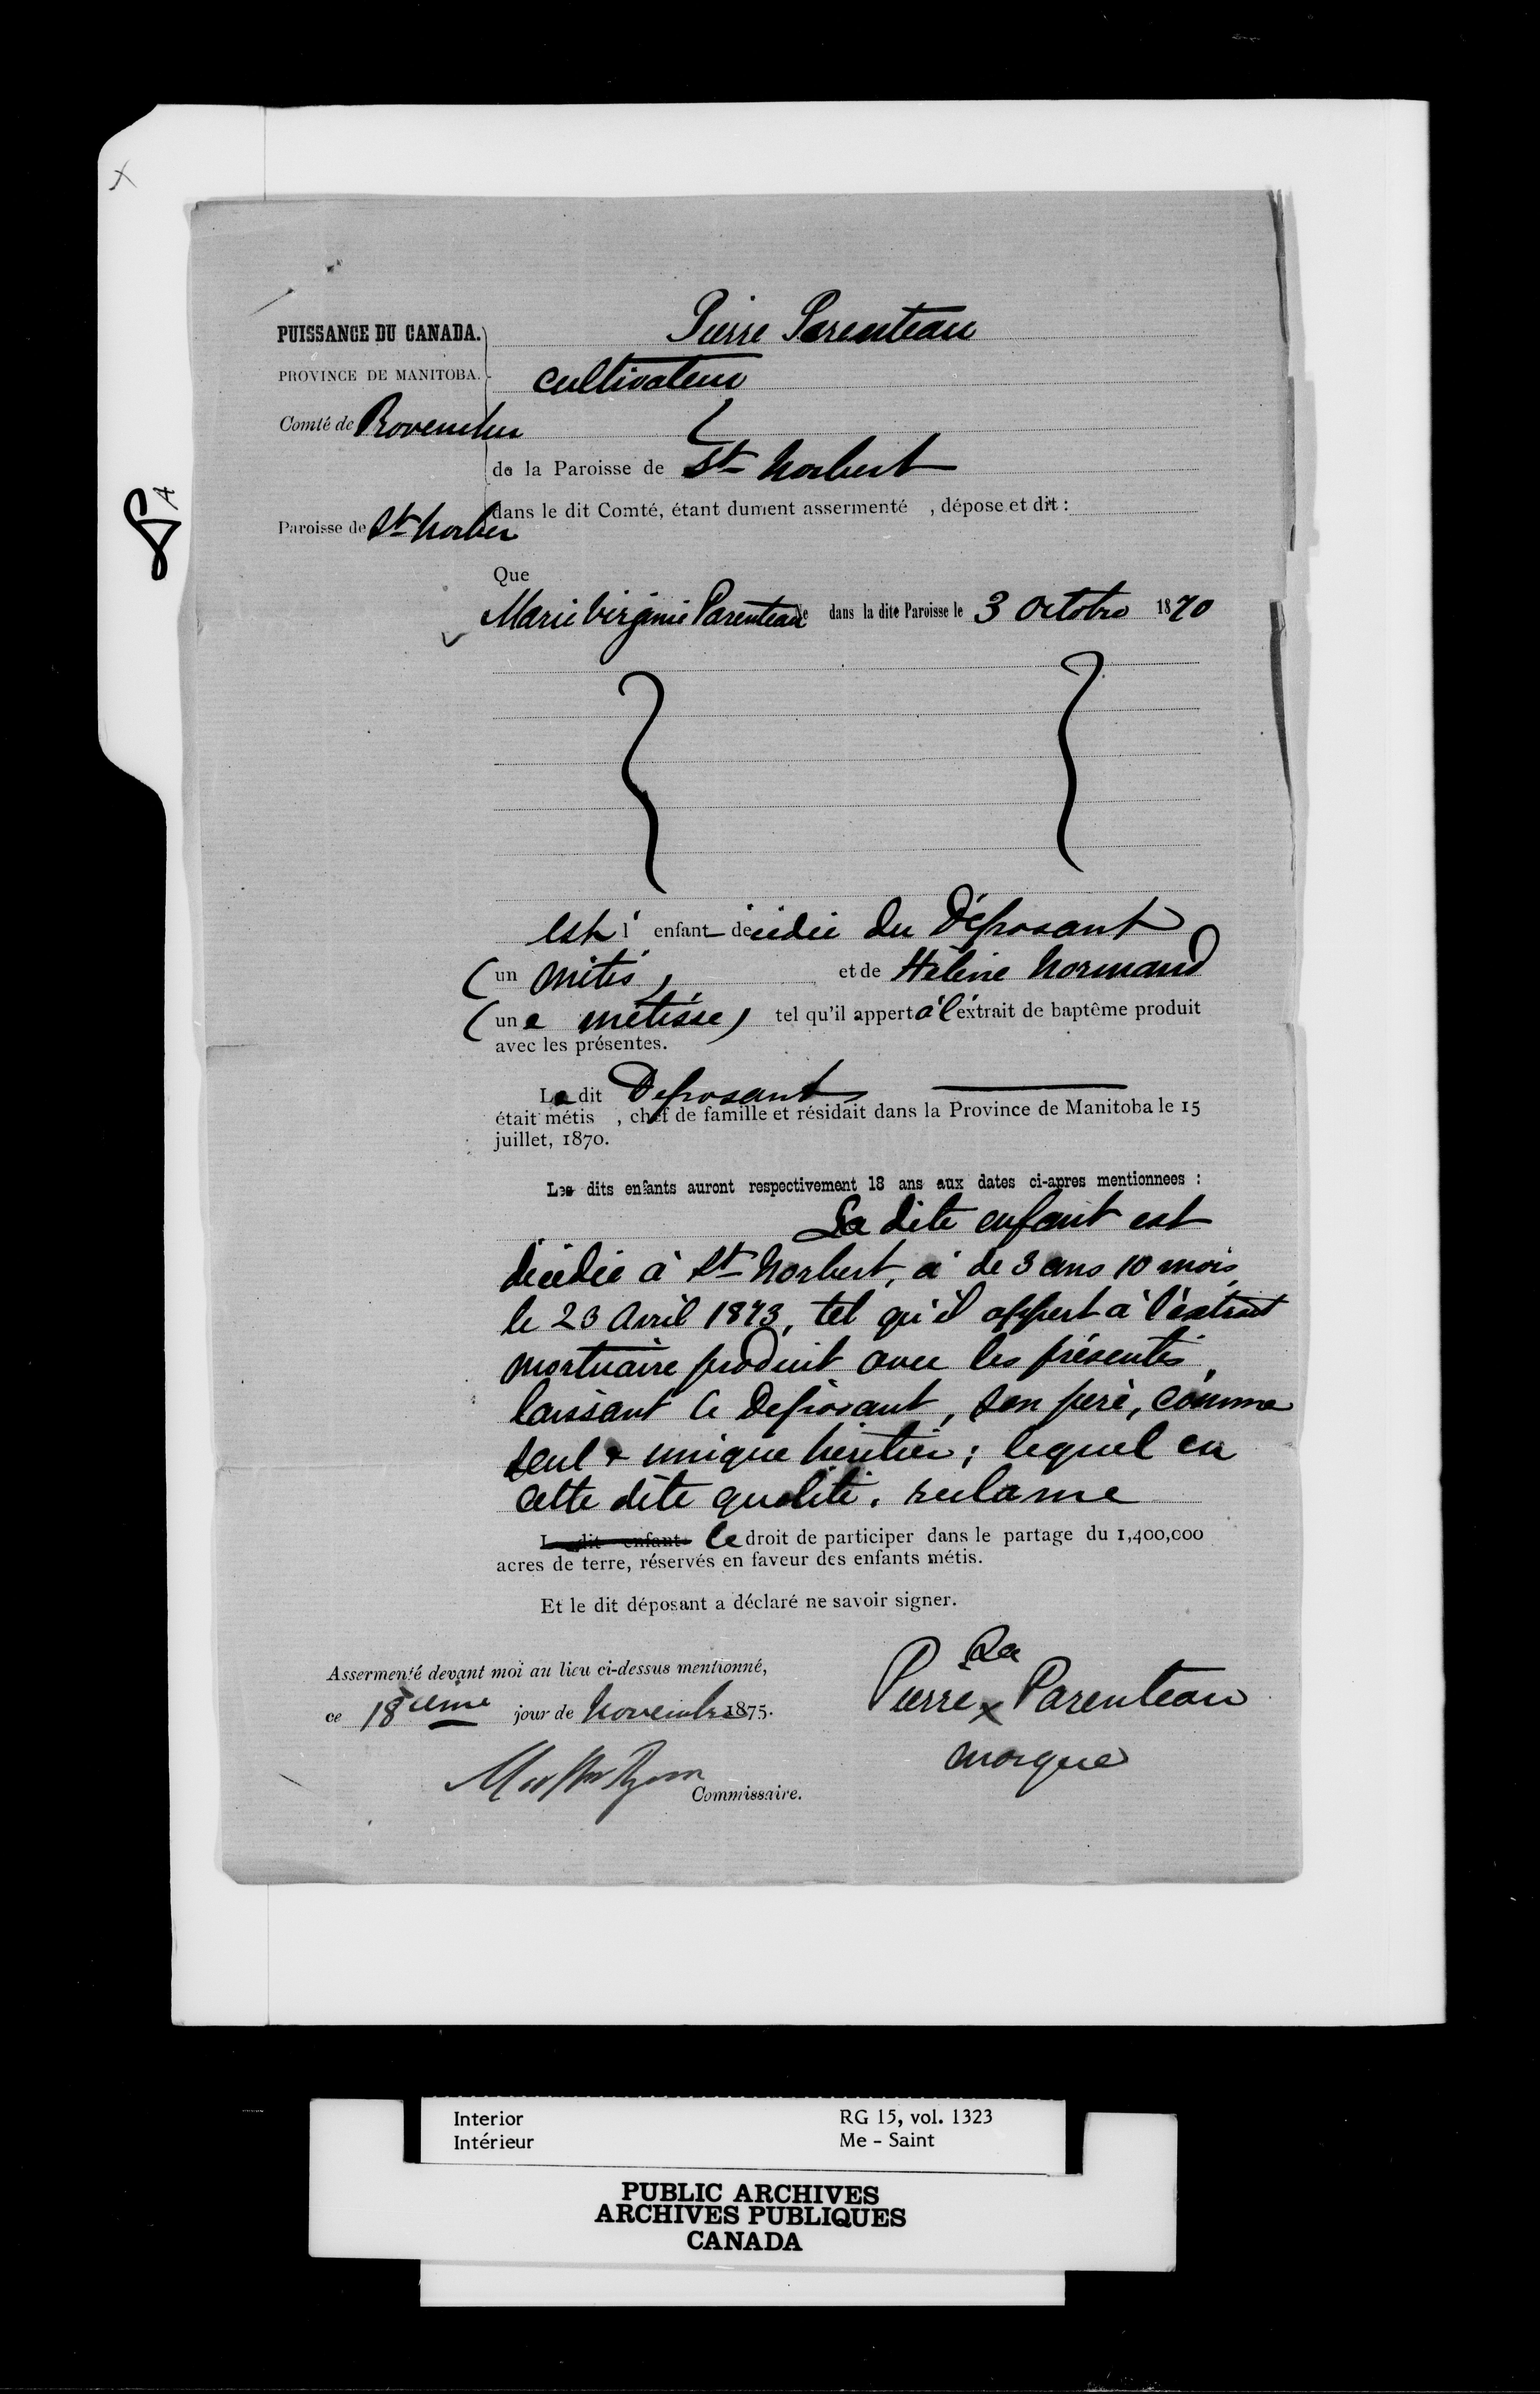 Pierre Parenteau
PUISSANCE DU CANADA.
PROVINCE DE MANITOBA.
cultivateur
Comté de Provencher
de la Paroisse de St Norbert
dans le dit Comté, étant dument assermenté , dépose et dit :
Paroisse de St Norber
Que
Marie Virginie Parenteau Né dans la dite Paroisse le 3 Octobre 1870
est l' enfant décédée du Déposant
(un métis) et de Hélène Normand
(une métisse) tel qu'il appert à l'extrait de baptême produit
avec les présentes.
Le dit Deposant
était métis , chef de famille et résidait dans la Province de Manitoba le 15
juillet, 1870.
Les dits enfants auront respectivement 18 ans aux dates ci-apres mentionnees :
La dite enfant est
décédée à St Norbert, a de 3 ans 10 mois,
le 23 Avril 1873, tel qu'il appert à l'extrait
mortuaire produit avec les présentes,
laissant le Deposant, son père, comme
seul & unique héritier; lequel en
cette dite qualité, reclame
L dit enfant le droit de participer dans le partage du 1,400,000
acres de terre, réservés en faveur des enfants métis.
Et le dit déposant a déclaré ne savoir signer.
Assermenté devant moi au lieu ci-dessus mentionné,
ce 18ieme jour de Novembre 1875.
Commissaire.
Sa
Pierre x Parenteau
marque
Interior
Intérieur
RG 15, vol. 1323
Me - Saint
PUBLIC ARCHIVES
ARCHIVES PUBLIQUES
CANADA